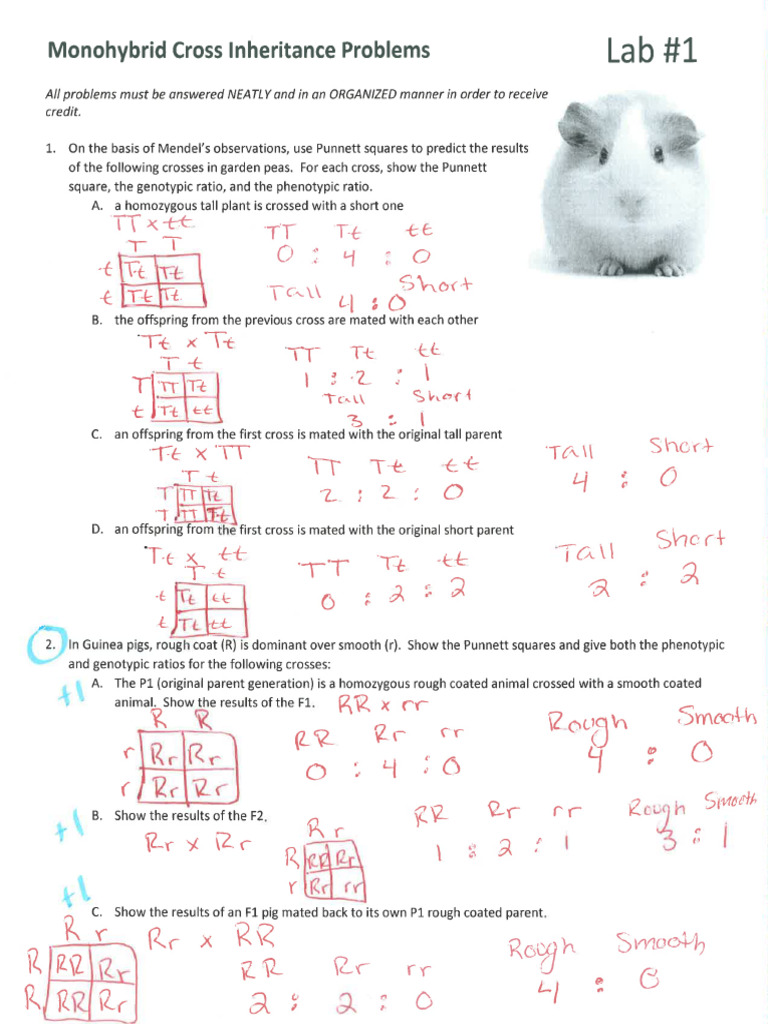 Monohybrid Cross Inheritance Problems
Lab #1
All problems must be answered NEATLY and in an ORGANIZED manner in order to receive
credit.
1. On the basis of Mendel's observations, use Punnett squares to predict the results
of the following crosses in garden peas. For each cross, show the Punnett
square, the genotypic ratio, and the phenotypic ratio.
A. a homozygous tall plant is crossed with a short one
TT x tt
T T
t Tt Tt
t Tt Tt
TT Tt tt
0 : 4 : 0
Tall Short
4 : 0
B. the offspring from the previous cross are mated with each other
Tt x Tt
T t
T TT Tt
t Tt tt
TT Tt tt
1 : 2 : 1
Tall Short
3 : 1
C. an offspring from the first cross is mated with the original tall parent
Tt x TT
T t
T TT Tt
T TT Tt
TT Tt tt
2 : 2 : 0
Tall Short
4 : 0
D. an offspring from the first cross is mated with the original short parent
Tt x tt
T t
t Tt tt
t Tt tt
TT Tt tt
0 : 2 : 2
Tall Short
2 : 2
2. In Guinea pigs, rough coat (R) is dominant over smooth (r). Show the Punnett squares and give both the phenotypic
and genotypic ratios for the following crosses:
+1
A. The P1 (original parent generation) is a homozygous rough coated animal crossed with a smooth coated
animal. Show the results of the F1. RR x rr
R R
r Rr Rr
r Rr Rr
RR Rr rr
0 : 4 : 0
Rough Smooth
4 : 0
+1
B. Show the results of the F2.
Rr x Rr
R r
R RR Rr
r Rr rr
RR Rr rr
1 : 2 : 1
Rough Smooth
3 : 1
+1
C. Show the results of an F1 pig mated back to its own P1 rough coated parent.
R r
R RR Rr
R RR Rr
Rr x RR
RR Rr rr
2 : 2 : 0
Rough Smooth
4 : 0